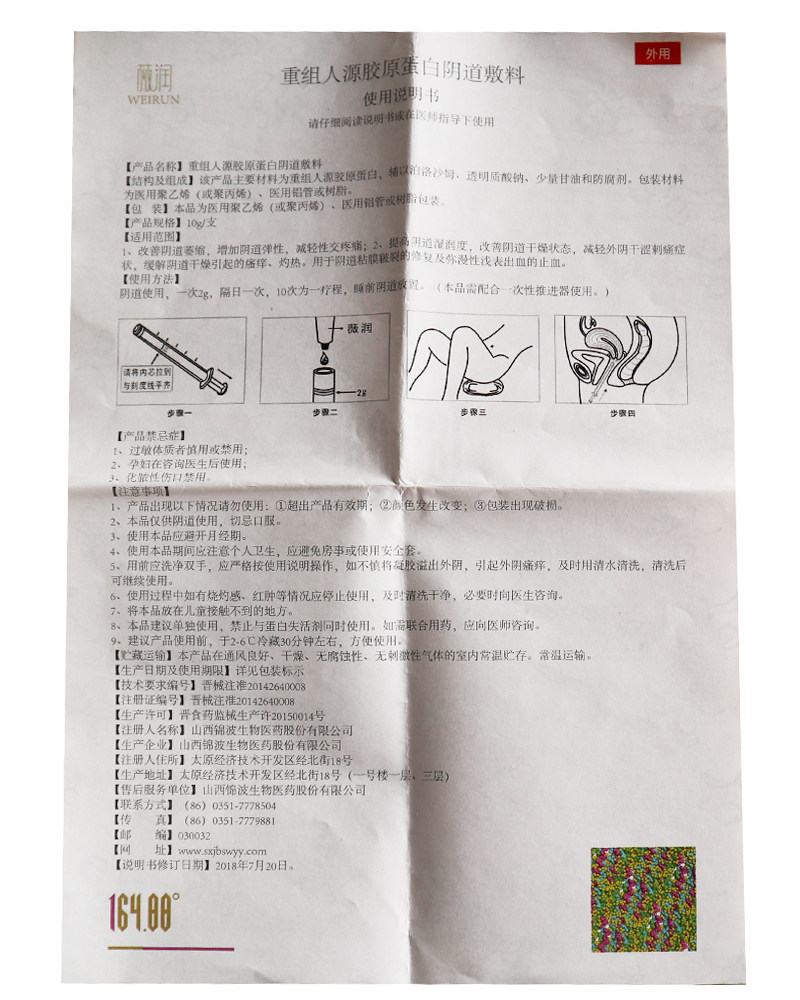 薇润
WEIRUN
外用
重组人源胶原蛋白阴道敷料
使用说明书
请仔细阅读说明书或在医师指导下使用
【产品名称】重组人源胶原蛋白阴道敷料
【结构及组成】该产品主要材料为重组人源胶原蛋白，辅以泊洛沙姆、透明质酸钠、少量甘油和防腐剂。包装材料
为医用聚乙烯（或聚丙烯）、医用铝管或树脂。
【包　装】本品为医用聚乙烯（或聚丙烯）、医用铝管或树脂包装。
【产品规格】10g/支
【适用范围】
1、改善阴道萎缩，增加阴道弹性，减轻性交疼痛；2、提高阴道湿润度，改善阴道干燥状态，减轻外阴干涩刺痛症
状，缓解阴道干燥引起的瘙痒、灼热。用于阴道粘膜皲裂的修复及弥漫性浅表出血的止血。
【使用方法】
阴道使用，一次2g，隔日一次，10次为一疗程，睡前阴道放置。（本品需配合一次性推进器使用。）
请将内芯拉到
与刻度线平齐
薇润
2g
步骤一
步骤二
步骤三
步骤四
【产品禁忌症】
1、过敏体质者慎用或禁用；
2、孕妇在咨询医生后使用；
3、化脓性伤口禁用。
【注意事项】
1、产品出现以下情况请勿使用：①超出产品有效期；②颜色发生改变；③包装出现破损。
2、本品仅供阴道使用，切忌口服。
3、使用本品应避开月经期。
4、使用本品期间应注意个人卫生，应避免房事或使用安全套。
5、用前应洗净双手，应严格按使用说明操作，如不慎将凝胶溢出外阴，引起外阴瘙痒，及时用清水清洗，清洗后
可继续使用。
6、使用过程中如有烧灼感、红肿等情况应停止使用，及时清洗干净，必要时向医生咨询。
7、将本品放在儿童接触不到的地方。
8、本品建议单独使用，禁止与蛋白失活剂同时使用。如需联合用药，应向医师咨询。
9、建议产品使用前，于2-6℃冷藏30分钟左右，方便使用。
【贮藏运输】本产品在通风良好、干燥、无腐蚀性、无刺激性气体的室内常温贮存。常温运输。
【生产日期及使用期限】详见包装标示
【技术要求编号】晋械注准20142640008
【注册证编号】晋械注准20142640008
【生产许可】晋食药监械生产许20150014号
【注册人名称】山西锦波生物医药股份有限公司
【生产企业】山西锦波生物医药股份有限公司
【注册人住所】太原经济技术开发区经北街18号
【生产地址】太原经济技术开发区经北街18号（一号楼一层、三层）
【售后服务单位】山西锦波生物医药股份有限公司
【联系方式】（86）0351-7778504
【传　　真】（86）0351-7779881
【邮　　编】030032
【网　　址】www.sxjbswyy.com
【说明书修订日期】2018年7月20日。
164.88°